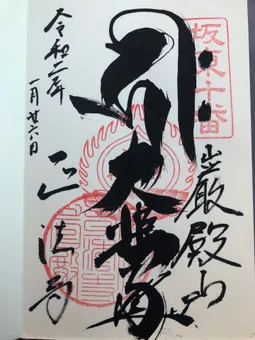 坂東十番
巌殿山
大悲殿
正法寺
令和二年
一月廿六日